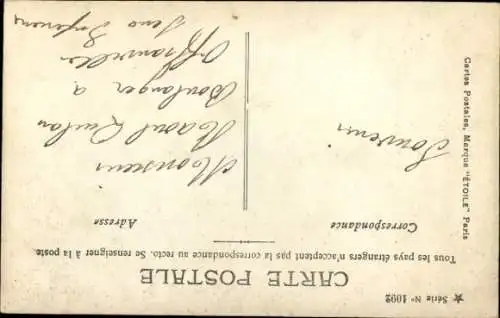 ★ Série N° 1092
CARTE POSTALE
Tous les pays étrangers n'acceptent pas la correspondance au recto. Se renseigner à la poste.
Correspondance
Adresse
Souvenir
Monsieur
Raoul
Boulanger a
Offranville
Seine Inférieure
Cartes Postales, Marque "ÉTOILE" Paris